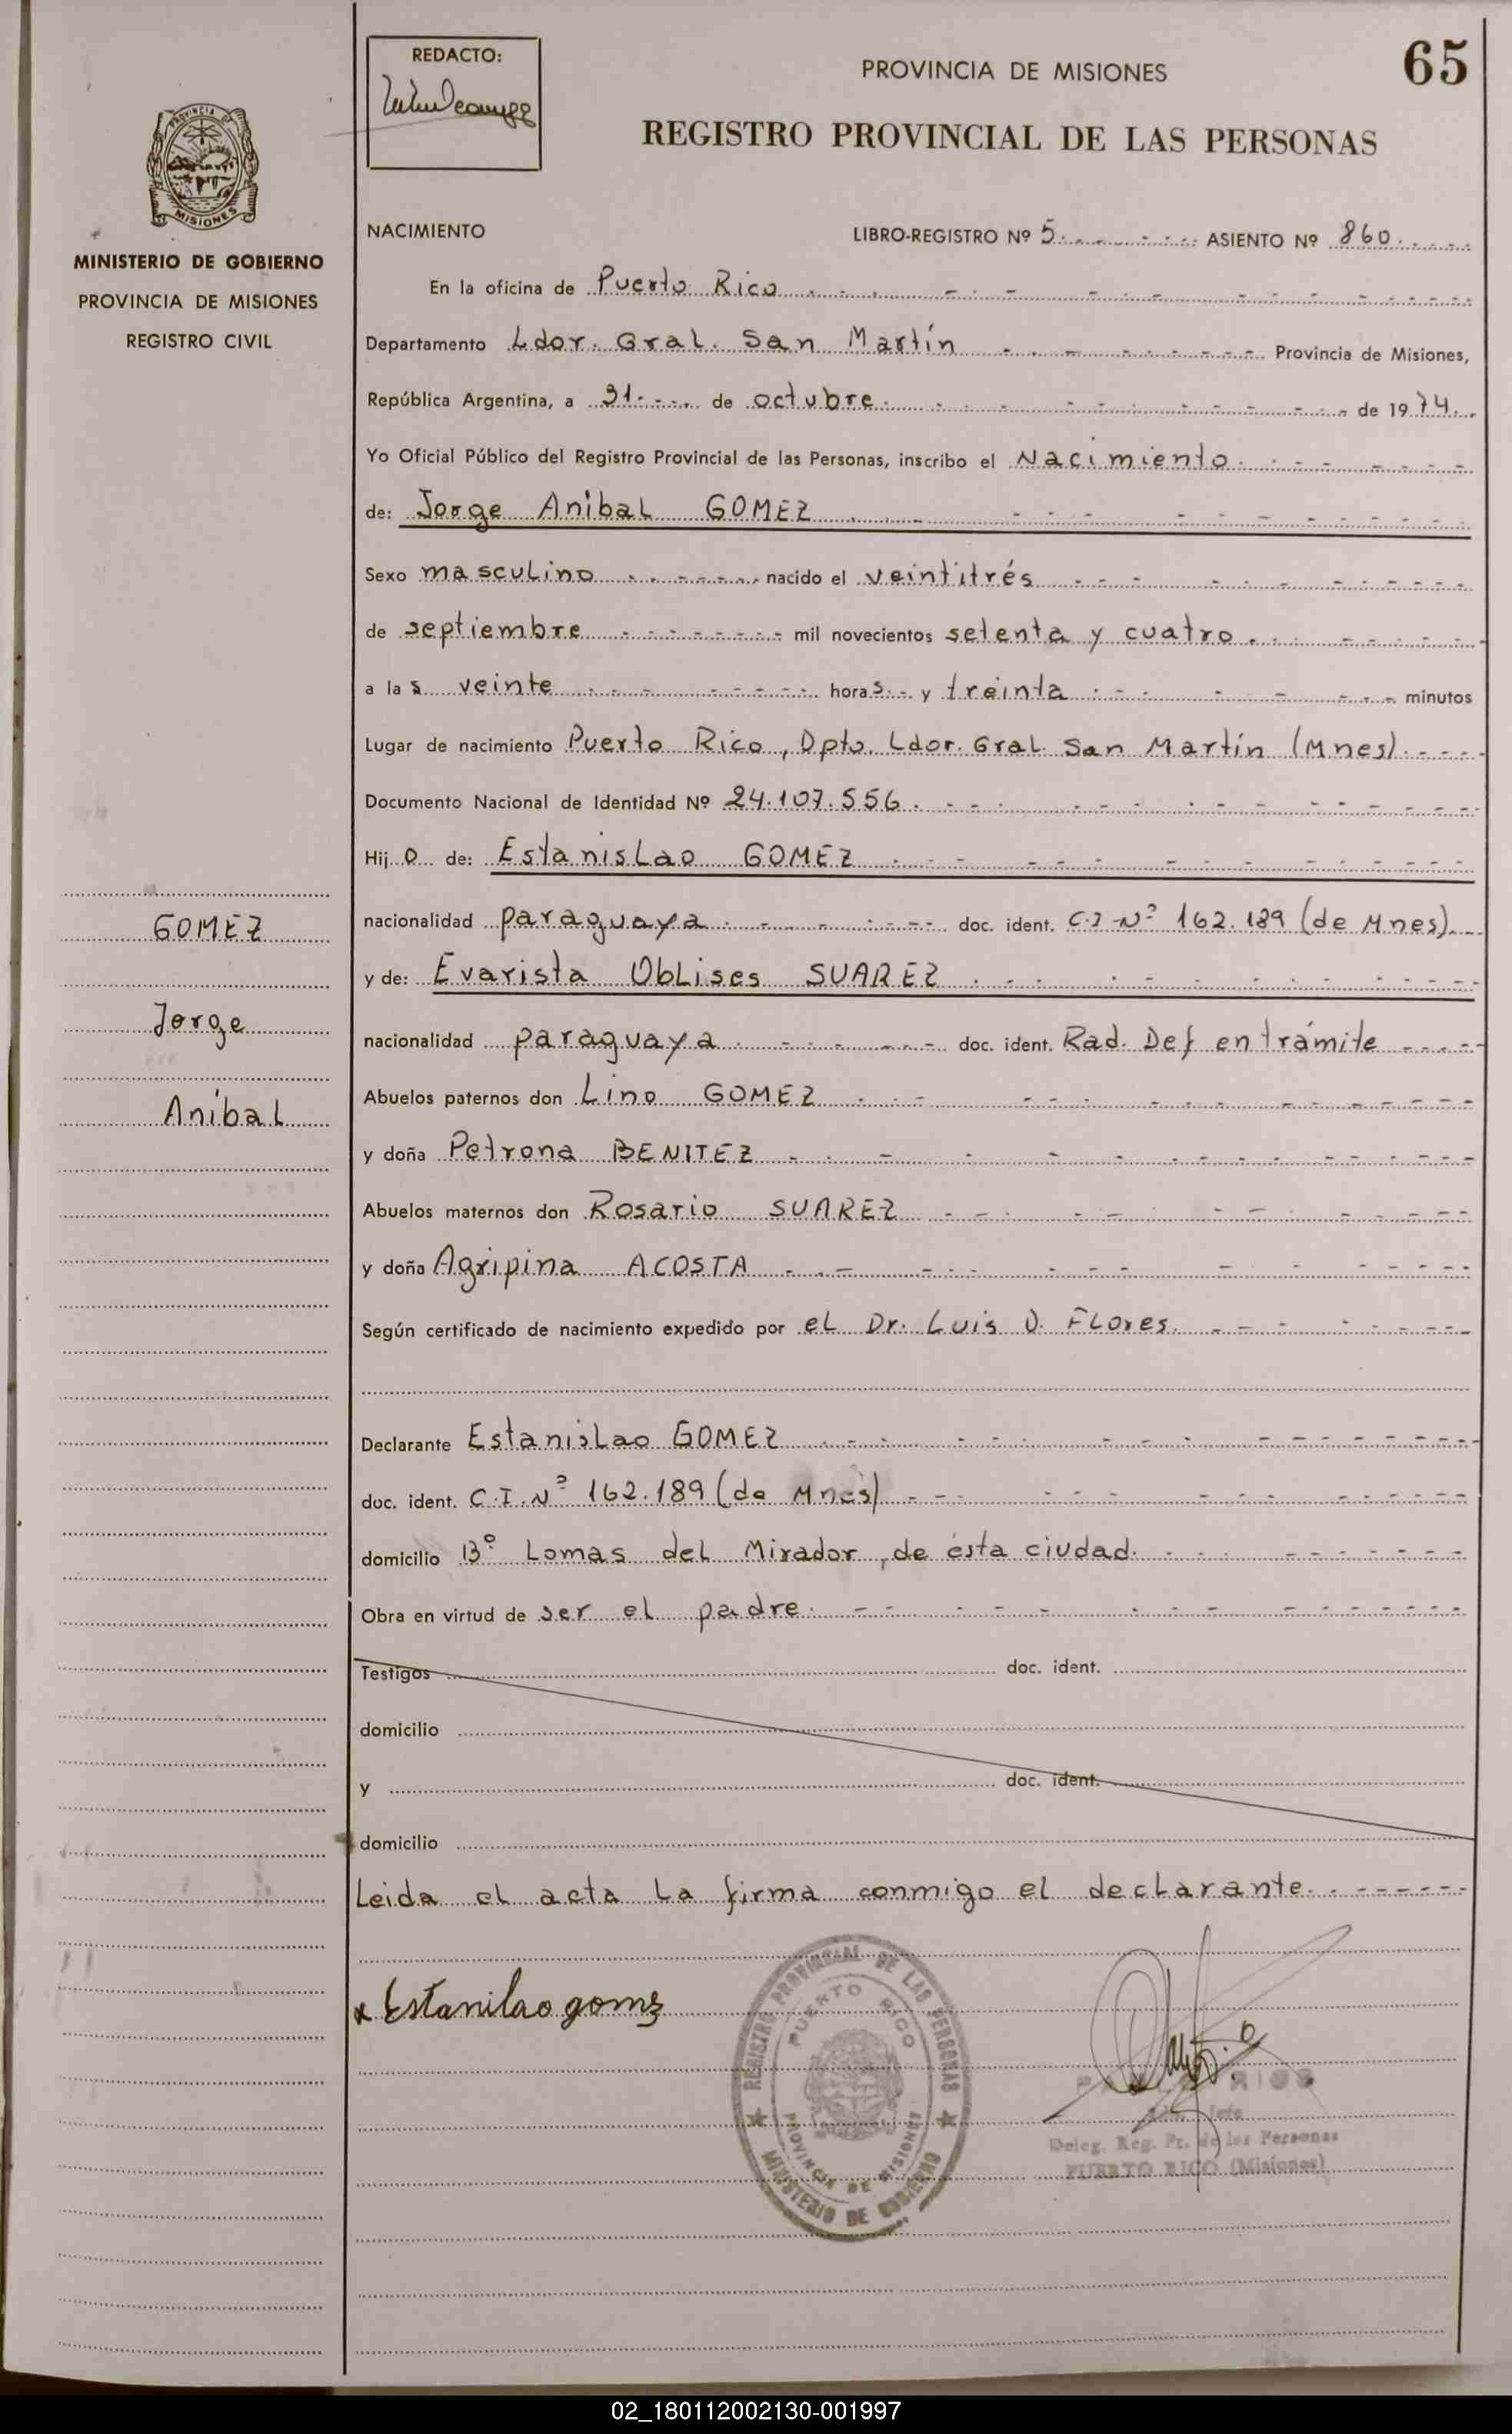 REDACTO:
PROVINCIA DE MISIONES
65
REGISTRO PROVINCIAL DE LAS PERSONAS
PROVINCIA
MISIONES
MINISTERIO DE GOBIERNO
PROVINCIA DE MISIONES
REGISTRO CIVIL
GOMEZ
Jorge
Anibal
NACIMIENTO LIBRO-REGISTRO Nº 5 ASIENTO Nº 860
En la oficina de Puerto Rico
Departamento Ldor. Gral. San Martín Provincia de Misiones,
República Argentina, a 31 de octubre de 1974
Yo Oficial Público del Registro Provincial de las Personas, inscribo el Nacimiento
de: Jorge Anibal GOMEZ
Sexo masculino nacido el veintitrés
de septiembre mil novecientos setenta y cuatro
a las veinte horas y treinta minutos
Lugar de nacimiento Puerto Rico, Dpto. Ldor. Gral. San Martín (Mnes)
Documento Nacional de Identidad Nº 24.107.556
Hijo de: Estanislao GOMEZ
nacionalidad paraguaya doc. ident. C.I Nº 162.189 (de Mnes)
y de: Evarista Oblises SUAREZ
nacionalidad paraguaya doc. ident. Rad. Def en trámite
Abuelos paternos don Lino GOMEZ
y doña Petrona BENITEZ
Abuelos maternos don Rosario SUAREZ
y doña Agripina ACOSTA
Según certificado de nacimiento expedido por el Dr. Luis D. Flores
Declarante Estanislao GOMEZ
doc. ident. C.I. Nº 162.189 (de Mnes)
domicilio Bº Lomas del Mirador, de ésta ciudad.
Obra en virtud de ser el padre
Testigos doc. ident.
domicilio
y doc. ident.
domicilio
Leida el acta la firma conmigo el declarante.
x Estanilao gomz
REGISTRO PROVINCIAL DE LAS PERSONAS
PUERTO RICO
PROVINCIA DE MISIONES
MINISTERIO DE GOBIERNO
Jefe
Deleg. Reg. Pr. de las Personas
PUERTO RICO (Misiones)
02_180112002130-001997